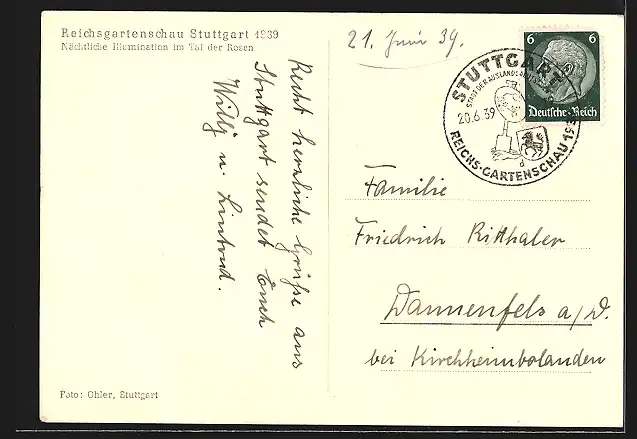 Reichsgartenschau Stuttgart 1939
Nächtliche Illumination im Tal der Rosen
Recht herzliche Grüße aus
Stuttgart sendet Euch
Willy u.
21. Juni 39.
STUTTGART
STADT DER AUSLANDS
20.6.39
REICHS-GARTENSCHAU 193
d
6 6
Deutsches Reich
Familie
Friedrich Ritthaler
Dannenfels a/D.
bei Kirchheimbolanden
Foto: Ohler, Stuttgart